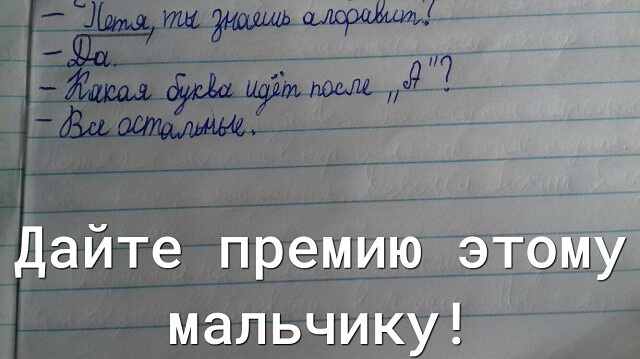 - Петя, ты знаешь алфавит?
- Да.
- Какая буква идёт после „А"?
- Все остальные.
Дайте премию этому
мальчику!